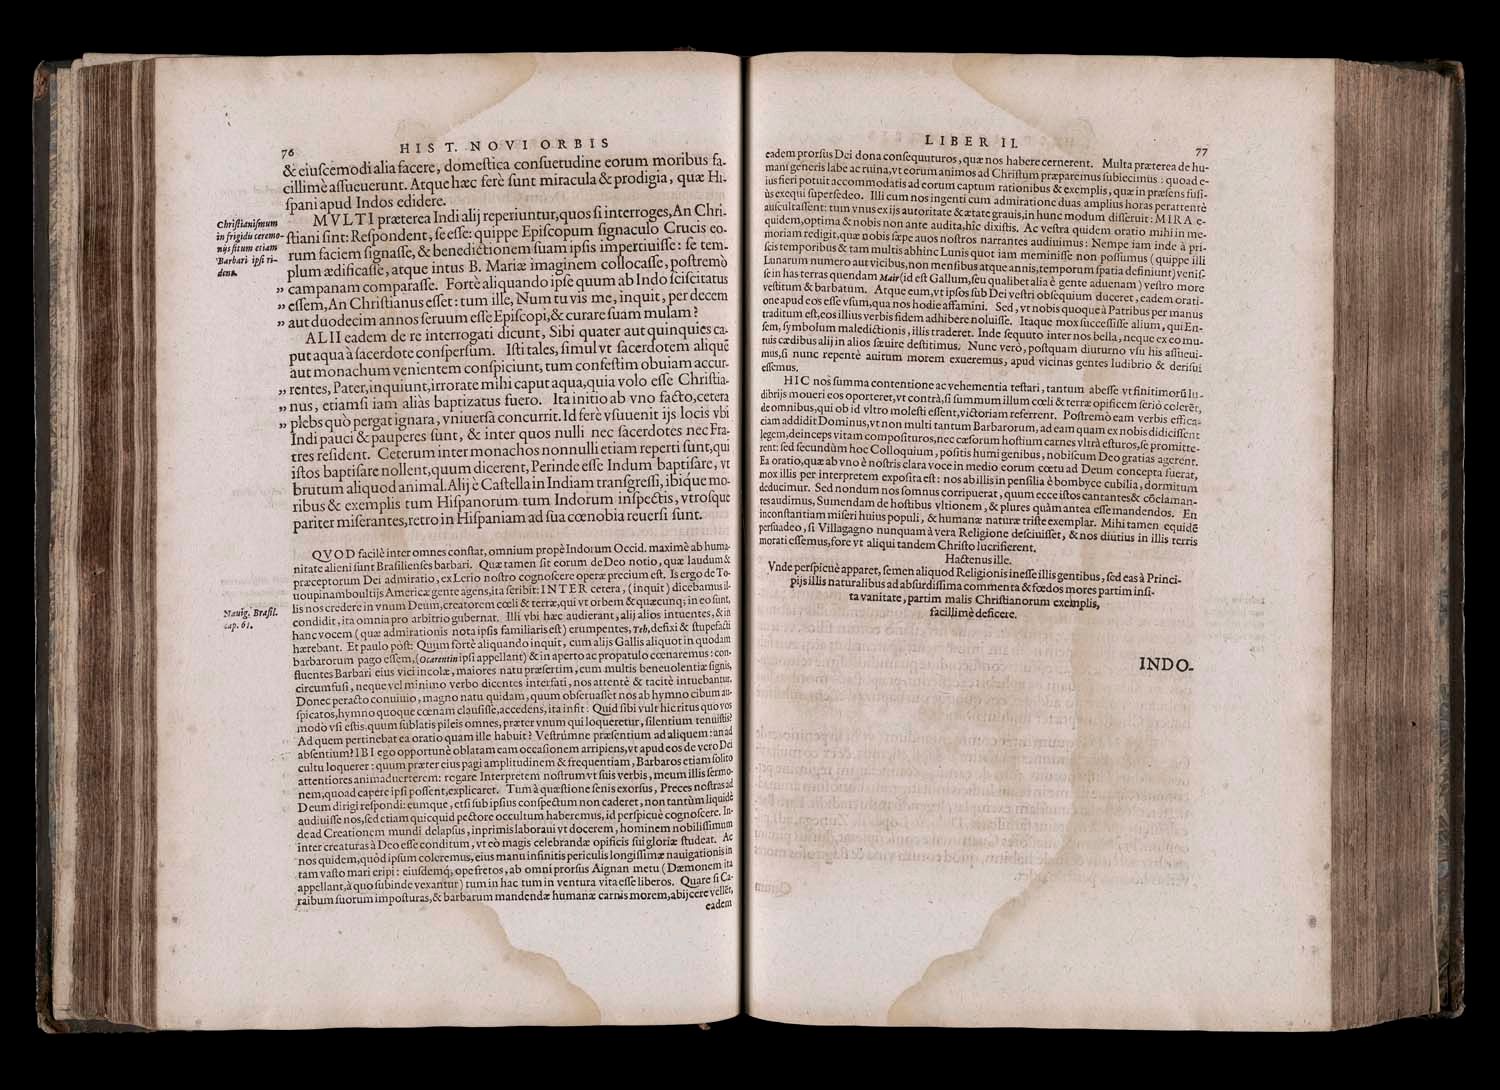 76
HIST. NOVI ORBIS
& eiuſcemodi alia facere, domeſtica conſuetudine eorum moribus fa-
cillimè aſſueuerunt. Atque hæc ferè ſunt miracula & prodigia, quæ Hi-
ſpani apud Indos edidere.
Chriſtianiſmum
in frigidis ceremo-
niis ſitum etiam
Barbari ipſi ri-
dent.
MVLTI præterea Indi alij reperiuntur, quos ſi interroges, An Chri-
ſtiani ſint: Reſpondent, ſe eſſe: quippe Epiſcopum ſignaculo Crucis eo-
rum faciem ſignaſſe, & benedictionem ſuam ipſis impertiuiſſe: ſe tem-
plum ædificaſſe, atque intus B. Mariæ imaginem collocaſſe, poſtremò
„ campanam comparaſſe. Fortè aliquando ipſe quum ab Indo ſciſcitatus
„ eſſem, An Chriſtianus eſſet: tum ille, Num tu vis me, inquit, per decem
„ aut duodecim annos ſeruum eſſe Epiſcopi, & curare ſuam mulam?
ALII eadem de re interrogati dicunt, Sibi quater aut quinquies ca-
put aqua à ſacerdote conſperſum. Iſti tales, ſimul vt ſacerdotem aliquē
aut monachum venientem conſpiciunt, tum confeſtim obuiam accur-
„ rentes, Pater, inquiunt, irrorate mihi caput aqua, quia volo eſſe Chriſtia-
„ nus, etiamſi iam aliàs baptizatus fuero. Ita initio ab vno facto, cetera
„ plebs quò pergat ignara, vniuerſa concurrit. Id ferè vſuuenit ijs locis vbi
Indi pauci & pauperes ſunt, & inter quos nulli nec ſacerdotes nec Fra-
tres reſident. Ceterum inter monachos nonnulli etiam reperti ſunt, qui
iſtos baptiſare nollent, quum dicerent, Perinde eſſe Indum baptiſare, vt
brutum aliquod animal. Alij è Caſtella in Indiam tranſgreſſi, ibique mo-
ribus & exemplis tum Hiſpanorum tum Indorum inſpectis, vtroſque
pariter miſerantes, retro in Hiſpaniam ad ſua cœnobia reuerſi ſunt.
QVOD facilè inter omnes conſtat, omnium propè Indorum Occid. maximè ab huma-
nitate alieni ſunt Braſilienſes barbari. Quæ tamen ſit eorum de Deo notio, quæ laudum &
præceptorum Dei admiratio, ex Lerio noſtro cognoſcere operæ precium eſt. Is ergo de To-
uoupinamboultijs Americæ gente agens, ita ſcribit: INTER cetera, (inquit) dicebamus il-
Nauig. Braſil.
cap. 61.
lis nos credere in vnum Deum, creatorem cœli & terræ, qui vt orbem & quæcunq; in eo ſunt,
condidit, ita omnia pro arbitrio gubernat. Illi vbi hæc audierant, alij alios intuentes, & in
hanc vocem (quæ admirationis nota ipſis familiaris eſt) erumpentes, Teh, defixi & ſtupefacti
hærebant. Et paulo pòſt: Quum fortè aliquando inquit, cum alijs Gallis aliquot in quodam
barbarorum pago eſſem, (Ocarentin ipſi appellant) & in aperto ac propatulo cœnaremus: con-
fluentes Barbari eius vici incolæ, maiores natu præſertim, cum multis beneuolentiæ ſignis,
circumfuſi, neque vel minimo verbo dicentes interfati, nos attentè & tacitè intuebantur.
Donec peracto conuiuio, magno natu quidam, quum obſeruaſſet nos ab hymno cibum au-
ſpicatos, hymno quoque cœnam clauſiſſe, accedens, ita infit: Quid ſibi vult hic ritus quo vos
modò vſi eſtis, quum ſublatis pileis omnes, præter vnum qui loqueretur, ſilentium tenuiſtis?
Ad quem pertinebat ea oratio quam ille habuit? Veſtrúmne præſentium ad aliquem: an ad
abſentium? IBI ego opportunè oblatam eam occaſionem arripiens, vt apud eos de vero Dei
cultu loquerer: quum præter eius pagi amplitudinem & frequentiam, Barbaros etiam ſolito
attentiores animaduerterem: rogare Interpretem noſtrum vt ſuis verbis, meum illis ſermo-
nem, quoad capere ipſi poſſent, explicaret. Tum à quæſtione ſenis exorſus, Preces noſtras ad
Deum dirigi reſpondi: eumque, etſi ſub ipſius conſpectum non caderet, non tantùm liquidè
audiuiſſe nos, ſed etiam quicquid pectore occultum haberemus, id perſpicuè cognoſcere. In-
de ad Creationem mundi delapſus, inprimis laboraui vt docerem, hominem nobiliſſimum
inter creaturas à Deo eſſe conditum, vt eò magis celebrandæ opificis ſui gloriæ ſtudeat. Ac
nos quidem, quòd ipſum coleremus, eius manu infinitis periculis longiſſimæ nauigationis in
tam vaſto mari eripi: eiuſdemq́; ope fretos, ab omni prorſus Aignan metu (Dæmonem ita
appellant, à quo ſubinde vexantur) tum in hac tum in ventura vita eſſe liberos. Quare ſi Ca-
raibum ſuorum impoſturas, & barbarum mandendæ humanæ carnis morem, abijcere vellēt,
eadem
LIBER II.
77
eadem prorſus Dei dona conſequuturos, quæ nos habere cernerent. Multa præterea de hu-
mani generis labe ac ruina, vt eorum animos ad Chriſtum præparemus ſubiecimus: quoad e-
ius fieri potuit accommodatis ad eorum captum rationibus & exemplis, quæ in præſens fuſi-
ùs exequi ſuperſedeo. Illi cum nos ingenti cum admiratione duas amplius horas perattentè
auſcultaſſent: tum vnus ex ijs autoritate & ætate grauis, in hunc modum diſſeruit: MIRA e-
quidem, optima & nobis non ante audita, hîc dixiſtis. Ac veſtra quidem oratio mihi in me-
moriam redigit, quæ nobis ſæpe auos noſtros narrantes audiuimus: Nempe iam inde à pri-
ſcis temporibus & tam multis abhinc Lunis quot iam meminiſſe non poſſumus (quippe illi
Lunarum numero aut vicibus, non menſibus atque annis, temporum ſpatia definiunt) veniſ-
ſe in has terras quendam Mair (id eſt Gallum, ſeu qualibet alia è gente aduenam) veſtro more
veſtitum & barbatum. Atque eum, vt ipſos ſub Dei veſtri obſequium duceret, eadem orati-
one apud eos eſſe vſum, qua nos hodie affamini. Sed, vt nobis quoque à Patribus per manus
traditum eſt, eos illius verbis fidem adhibere noluiſſe. Itaque mox ſucceſſiſſe alium, qui En-
ſem, ſymbolum maledictionis, illis traderet. Inde ſequuto inter nos bella, neque ex eo mu-
tuis cædibus alij in alios ſæuire deſtitimus. Nunc verò, poſtquam diuturno vſu his aſſueui-
mus, ſi nunc repentè auitum morem exueremus, apud vicinas gentes ludibrio & deriſui
eſſemus.
HIC nos ſumma contentione ac vehementia teſtari, tantum abeſſe vt finitimorū lu-
dibrijs moueri eos oporteret, vt contrà, ſi ſummum illum cœli & terræ opificem ſeriò colerēt,
de omnibus, qui ob id vltro moleſti eſſent, victoriam referrent. Poſtremò eam verbis effica-
ciam addidit Dominus, vt non multi tantum Barbarorum, ad eam quam ex nobis didiciſſent
legem, deinceps vitam compoſituros, nec cæſorum hoſtium carnes vltrà eſturos, ſe promitte-
rent: ſed ſecundùm hoc Colloquium, poſitis humi genibus, nobiſcum Deo gratias agerent.
Ea oratio, quæ ab vno è noſtris clara voce in medio eorum cœtu ad Deum concepta fuerat,
mox illis per interpretem expoſita eſt: nos ab illis in penſilia è bombyce cubilia, dormitum
deducimur. Sed nondum nos ſomnus corripuerat, quum ecce iſtos cantantes & cōclaman-
tes audimus, Sumendam de hoſtibus vltionem, & plures quàm antea eſſe mandendos. En
inconſtantiam miſeri huius populi, & humanæ naturæ triſte exemplar. Mihi tamen equidē
perſuadeo, ſi Villagagno nunquam à vera Religione deſciuiſſet, & nos diutius in illis terris
morati eſſemus, fore vt aliqui tandem Chriſto lucrifierent.
Hactenus ille.
Vnde perſpicuè apparet, ſemen aliquod Religionis ineſſe illis gentibus, ſed eas à Princi-
pijs illis naturalibus ad abſurdiſſima commenta & fœdos mores partim inſi-
ta vanitate, partim malis Chriſtianorum exemplis,
facillimè deficere.
INDO-